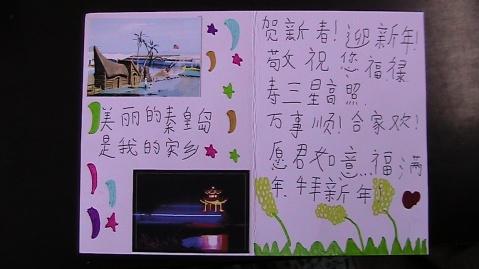 美丽的秦皇岛
是我的家乡
贺新春!迎新年!
敬祝您福禄
寿三星高照.
万事顺!合家欢!
愿君如意.福满
年.拜新年!